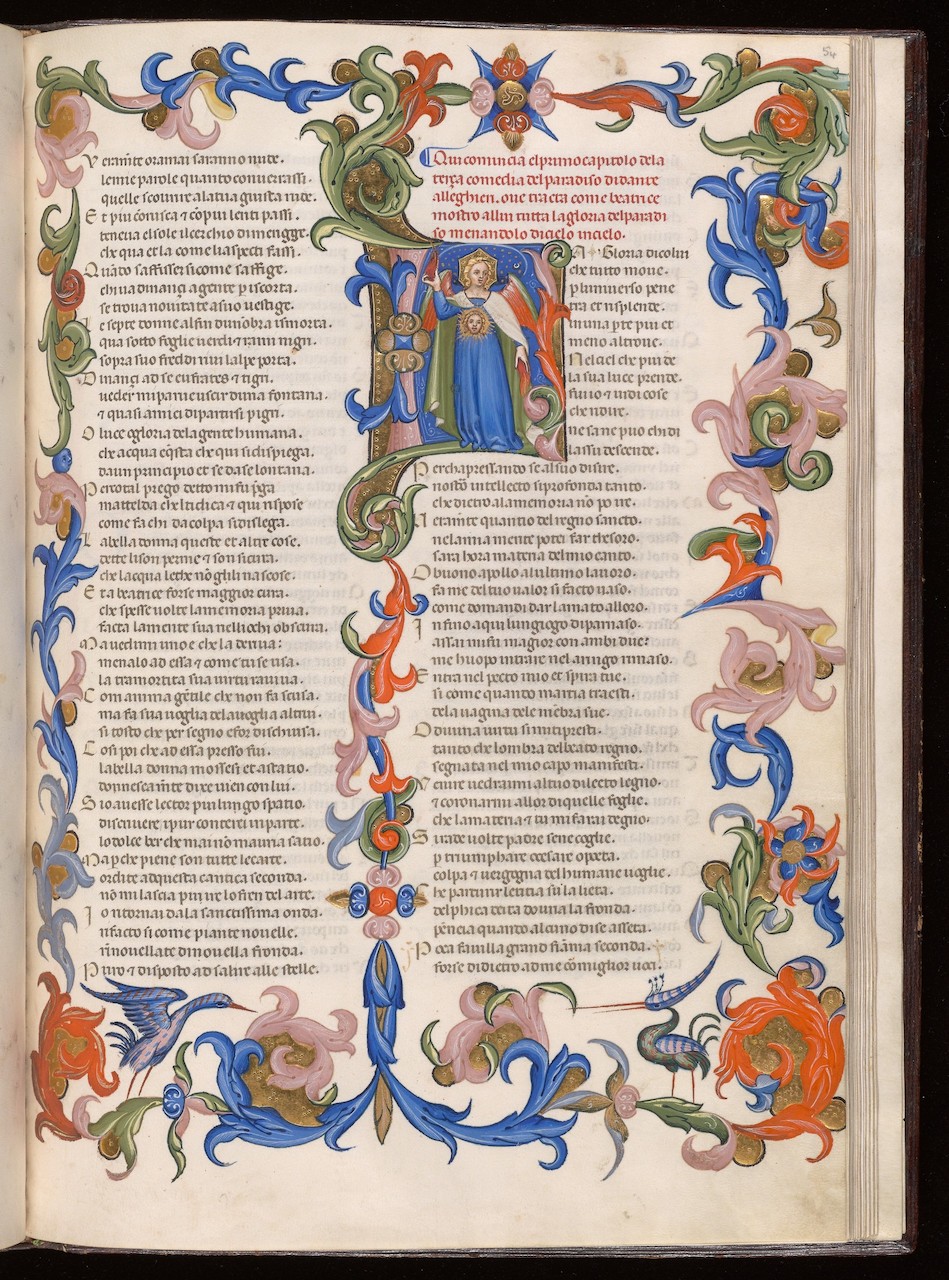 54
V eramẽte oramai saranno nude.
lemie parole quanto conuerrassi.
quelle scourire alatua giusta rude.
E t piu corusca & cõpiu lenti passi.
teneua elsole ilcerchio dimerigge.
che qua et la come liaspecti fassi.
Quãdo saffisser sicome saffige.
chiua dimanci agente p iscorta.
se troua nouitate asuo uestige.
L e septe donne alfin dunõbra ismorta.
qua sotto foglie uerdi & rami nigri.
sopra suo freddi riui lalpe porta.
D inanci ad se eufrates & tigri.
ueder mi parue uscir duna fontana.
& quasi amici dipartirsi pigri.
O luce o gloria dela gente humana.
che acqua e q̃sta che qui si dispiega.
da un principio et se da se lontana.
P ercotal prego detto mi fu p̱ga
mattelda che ltidica & qui rispose
come fa chi da colpa si dislega.
L abella donna queste et altre cose.
dette li son perme & son sicura.
che lacqua lethe nõ ghli nascose.
E t a beatrice forse maggior cura.
che spesse uolte lamemoria priua.
facta lamente sua nellicchi obscura.
M a uedi uni uno e che la deriua:
menalo ad essa & come tu se usa.
la tramortita sua uirtu rauiua.
C om anima gẽtile che non fa scusa.
ma fa sua uoglia dela uoglia altrui.
si tosto che per segno e for dischiusa.
C osi poi che ad essa presso fui.
labella donna mossesi et a statio.
donnescam̃te dixe uien con lui.
S io auesse lector piu lungo spatio.
discriuere i pur conterei in parte.
lo dolce ber che mai nõ mauria satio.
M a p che piene son tutte le carte.
ordite ad questa cantica seconda.
nõ mi lascia piu ire lo fren del arte.
I o ritornai dala sanctissima onda.
rifacto si come piante nouelle.
rinouellate di nouella fronda.
P uro & disposto ad salire alle stelle.
Qui comincia el primo capitolo dela
terça comedia del paradiso di dante
alleghieri. oue tracta come beatrice
mostro allui tutta la gloria del paradi
so menandolo di cielo in cielo.
LA Gloria di colui
che tutto moue.
p luniuerso pene
tra et risplende.
in una p̱te piu et
meno altroue.
Nel ciel che piu de
la sua luce prende.
fu io & uidi cose
che ridire.
ne sa ne puo chi di
lassu descende.
P erchapressando se al suo disire.
nostro intellecto si profonda tanto.
che dietro ala memoria nõ po ire.
V eramẽte quantio del regno sancto.
nela mia mente potei far thesoro.
sara hora materia del mio canto.
O buono apollo al ultimo lauoro.
fa me del tuo ualor si facto uaso.
come domandi dar lamato alloro.
I nfino a qui lun giogo di parnaso.
assai mi fu ma gior con ambi due:
me huopo intrare nel aringo rimaso.
E ntra nel pecto mio et spira tue.
si come quanto marsia traesti.
dela uagina dele mẽbra sue.
O diuina uirtu si mi ti presti.
tanto che lombra del beato regno.
segnata nel mio capo manifesti.
V enire uedrami al tuo dilecto legno.
& coronarmi allor di quelle foglie.
che la materia & tu mi farai degno.
S i rade uolte padre se ne coglie.
p triumphare o cesare o poeta.
colpa & uergogna del humane uoglie.
C he parturir letitia su la lieta.
delphica deita douria la fronda.
pẽneia quanto alcuno di se asseta.
P oca fauilla gran fiãma seconda.
forse di dietro ad me cõ miglior uoci.